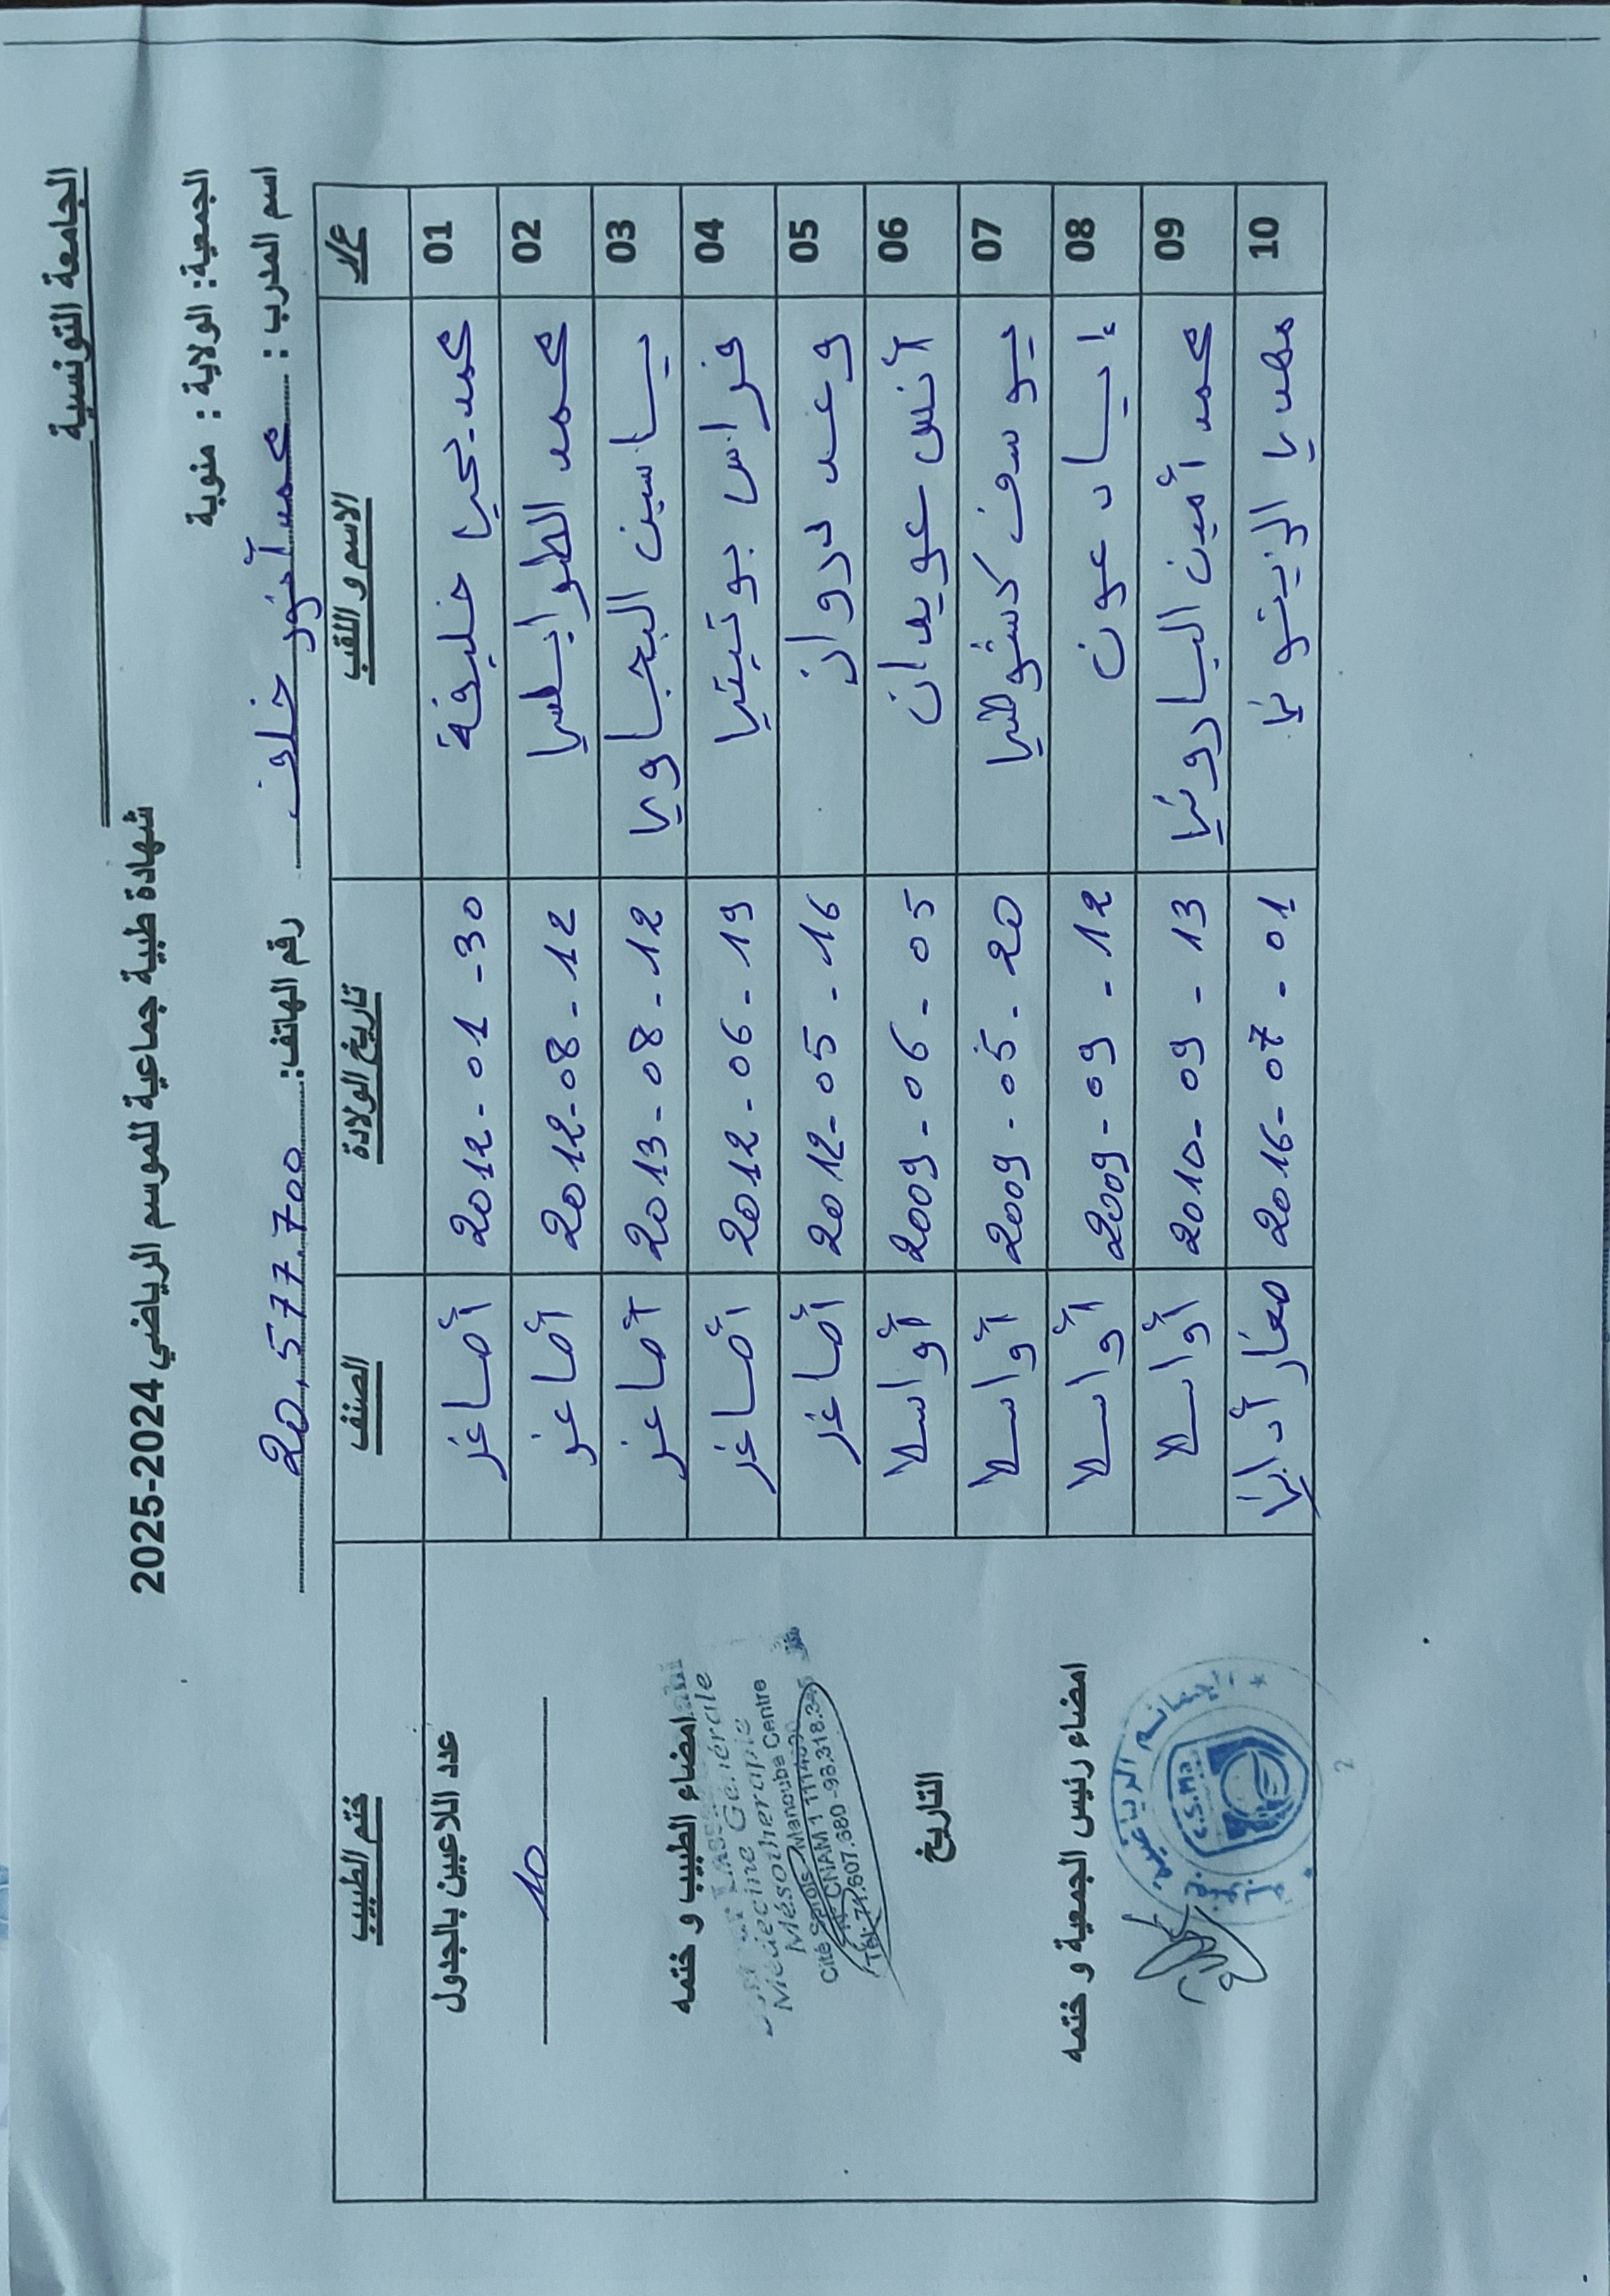 الجامعة التونسية
شهادة طبية جماعية للموسم الرياضي 2024-2025
الجمعية: الولاية : منوبة
اسم المدرب : محمد أنور خلف رقم الهاتف: 20.577.700
ع/ر الاسم و اللقب تاريخ الولادة الصنف ختم الطبيب
01 محمد يحيى خليفة 2012-01-30 أصاغر
02 محمد الطرابلسي 2012-08-12 أصاغر
03 ياسين البجاوي 2013-08-12 أصاغر
04 فراس بوتيتي 2012-06-19 أصاغر
05 وعد دروان 2012-05-16 أصاغر
06 أنس عويدان 2009-06-05 أواسط
07 يوسف كشوطي 2009-05-20 أواسط
08 إياد عون 2009-09-12 أواسط
09 محمد أمين الباروني 2010-09-13 أواسط
10 مهدي الزيتوني 2016-07-01 صغار أداني
عدد اللاعبين بالجدول
10
امضاء الطبيب و ختمه
Médecine Générale
Mésothérapie
Manouba Centre
CNAM
التاريخ
امضاء رئيس الجمعية و ختمه
C.S.Ma